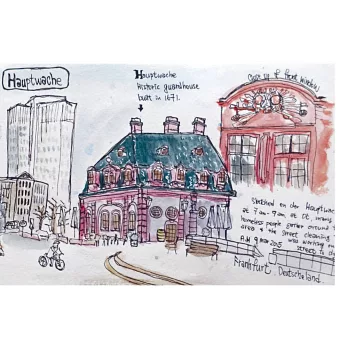 Hauptwache
Hauptwache
historic guardhouse
built in 1671.
Close up of front window
Sketched on der Hauptwac
at 7am-9am at 0c, many
homeless people gather around
area & the street cleaning
was working on
street to
9 mar 2015
Frankfurt Deutscheland.